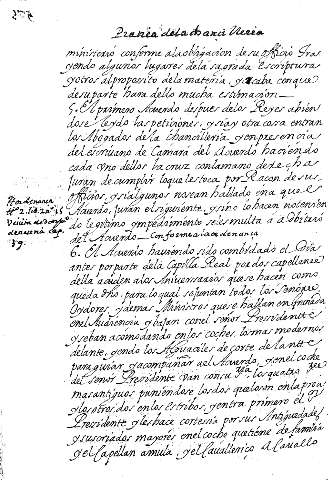 Practica de la chanci lleria
ministerio conforme a la obligacion de su officio tra
yendo algunos lugares de la sagrada escriptura
y otros al proposito de la materia, y acaba con que
de su parte hara dello mucha estimacion —
5. El primero Acuerdo despues de los Reyes abien
dose leydo las peticiones, y si ay otra cosa entran
los Abogados de la chancilleria y en presencia
del escriuano de Camara del Acuerdo haciendo
cada uno dellos la cruz con la mano derecha
Juran de cumplir lo que les toca por Raçon de sus
officios, y si algunos no se an hallado en a que el
Acuerdo, juran el siguiente, y si no lo hacen no teniendo
legitimo impedimento se les multa a el arbitrio
del Acuerdo — conforme a la ordenança
Ordenança
lib. 2. tit. 2. nº 15
cap.
59.
6. El Acuerdo haviendo sido combidado el Dia
antes por parte de la Capilla Real por dos capellanes
della acuden a los Aniversarios que se hacen como
queda dho. para lo qual se juntan todos los Señores
Oydores, y demas Ministros que se hallan en forma
en la Audiencia y bajan con el señor Presidente
y se ban acomodando en los coches, los mas modernos
delante, yendo los Alguaciles de corte delante
para guiar y acompañar a el Acuerdo, y en el coche
del señor Presidente van con su sª los quatro
mas antiguos poniendose los dos que lo son en la proa
y los otros dos en los estribos, y entra primero el
y les hace cortesia por sus Antiguedades
y sus criados mayores en el coche que tiene de familia
y el Capellan a mula, y el cauallerizo a Cauallo